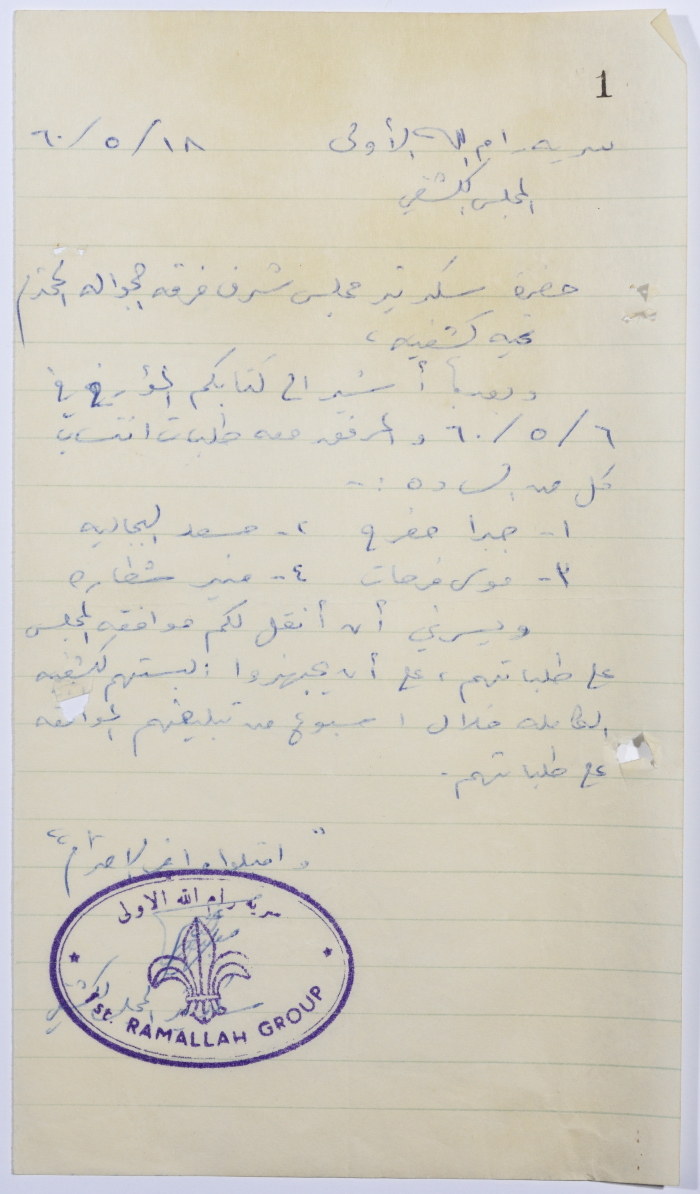 1
سرية رام الله الأولى ١٨/٥/٦٠
المجلس الكشفي
حضرة سكرتير مجلس شرف فرقة الجوالة المحترم
تحيه كشفيه،
وبعد، أشير الى كتابكم المؤرخ في
٦/٥/٦٠ والمرفق معه طلبات انتساب
كل من السادة :-
١- جبرا مفرح ٢- مسعد البجاليه
٣- موسى فرحات ٤- منير شطاره
ويسرني أن أنقل لكم موافقة المجلس
على طلباتهم، على أن يجهزوا ألبستهم الكشفيه
الكامله خلال اسبوع من تبليغهم الموافقه
على طلباتهم.
"واقبلوا الاحترام"
سرية رام الله الاولى
سكرتير المجلس الكشفي
1st. RAMALLAH GROUP